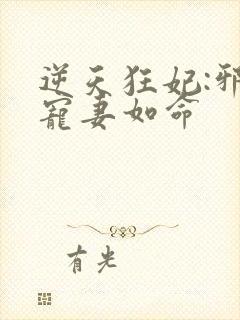 逆天狂妃:邪
寵妻如命
有光